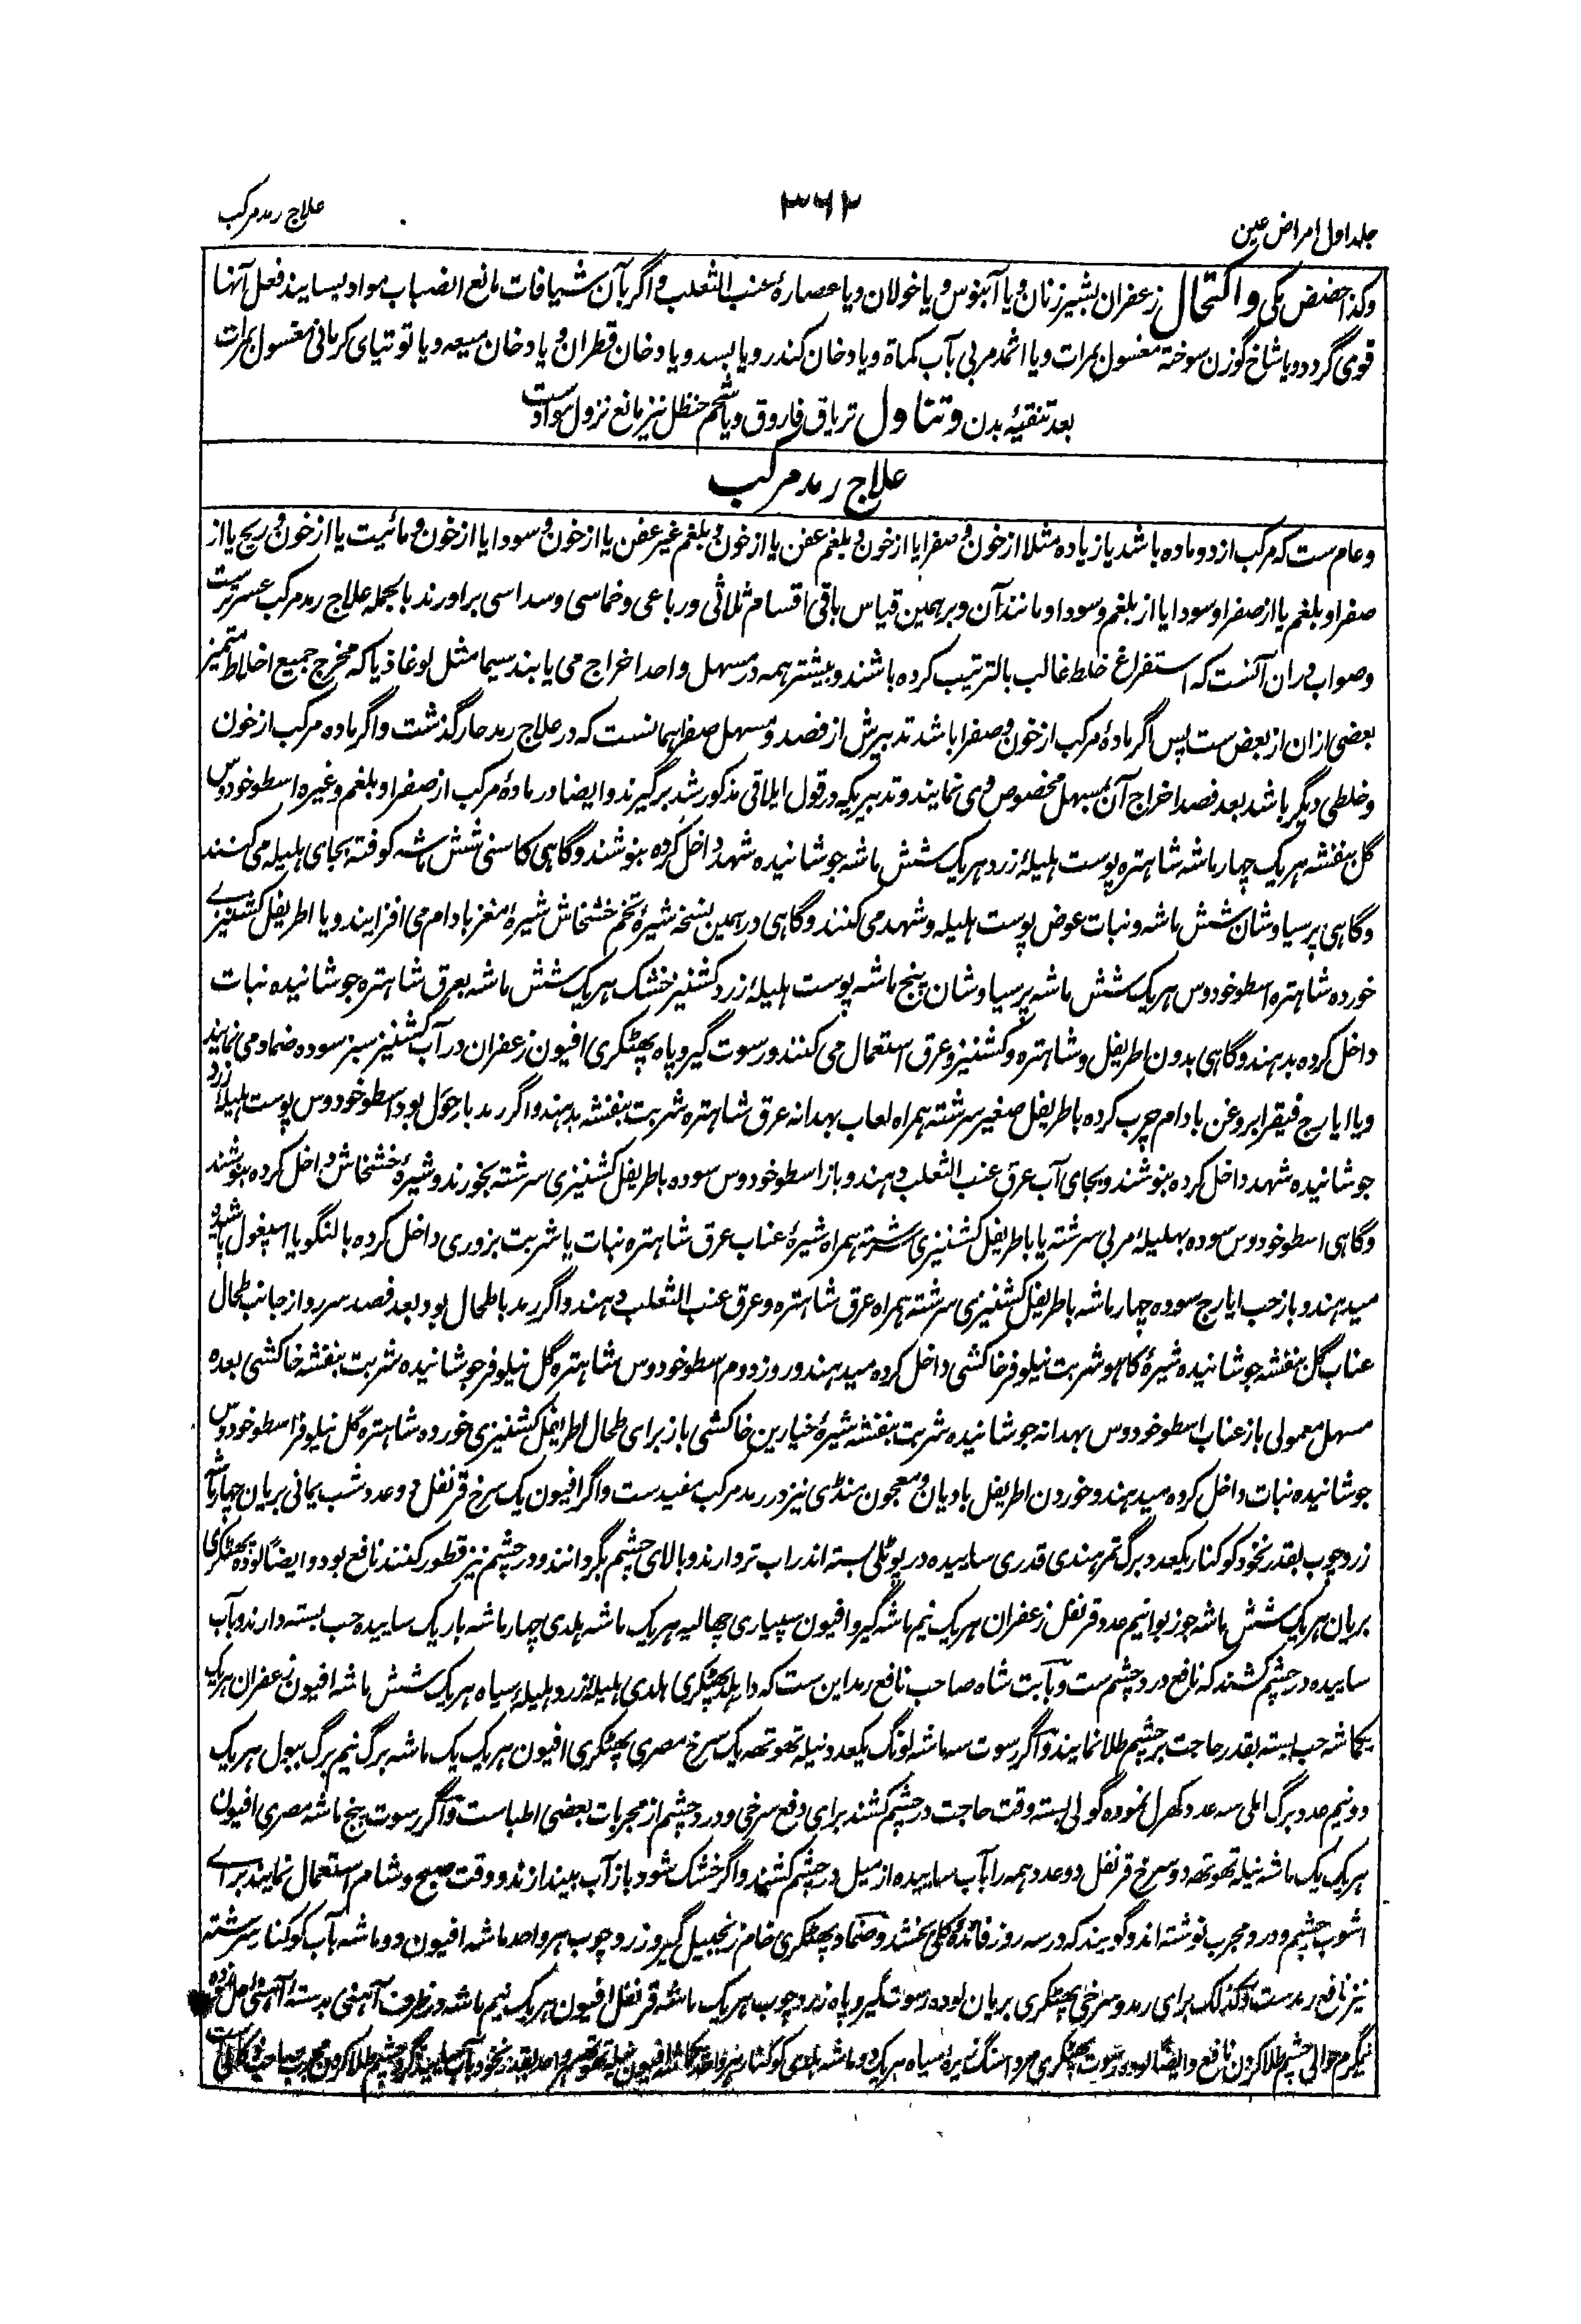 جلد اول امراض عین
۳۶۲
علاج رمد مرکب
وکذا حضض مکی و اکتحال زعفران بشیر زنان و یا آبنوس و یا خولان و یا عصارهٔ عنب الثعلب و اگر بآن شیافات مانع انصباب مواد بسایند فعل آنها
قوی گردد و یا شاخ گوزن سوخته مغسول بمرات و یا اثمد مربی بآب کماة و یا دخان کندر و یا بسد و یا دخان قطران و یا دخان میعه و یا توتیای کرمانی مغسول بمرات
بعد تنقیهٔ بدن و تناول تریاق فاروق و یا شحم حنظل نیز مانع نزول مواد است
علاج رمد مرکب
و عام ست که مرکب از دو ماده باشد یا زیاده مثلا از خون و صفرا یا از خون و بلغم عفن یا از خون و بلغم غیر عفن یا از خون و سودا یا از خون و مائیت یا از خون و ریح یا از
صفرا و بلغم یا از صفرا و سودا یا از بلغم و سودا و مانند آن و بر همین قیاس باقی اقسام ثلاثی و رباعی و خماسی و سداسی براورند بالجمله علاج رمد مرکب عسر ترست
و صواب دران آنست که استفراغ خلط غالب بالترتیب کرده باشند و بیشتر همه در مسهل واحد اخراج می یابند سیما مثل لوغاذیا که مخرج جمیع اخلاط متمیز
بعضی ازان از بعض ست پس اگر مادهٔ مرکب از خون و صفرا باشد تدبیرش از فصد و مسهل صفرا همانست که در علاج رمد حار گذشت و اگر ماده مرکب از خون
و خلطی دیگر باشد بعد فصد اخراج آن بمسهل مخصوص وی نمایند و تدبیریکه در قول ایلاقی مذکور شد برگیرند و ایضا در مادهٔ مرکب از صفرا و بلغم و غیره اسطوخودوس
گل بنفشه هر یک چهار ماشه شاهتره پوست هلیلهٔ زرد هر یک شش ماشه جوشانیده شهد داخل کرده بنوشند و گاهی کاسنی شش ماشه کوفته بجای هلیله می کنند
و گاهی پرسیاوشان شش ماشه و نبات عوض پوست هلیله و شهد می کنند و گاهی در همین نسخه شیرهٔ تخم خشخاش شیرهٔ مغز بادام می افزایند و یا اطریفل کشنیزے
خورده شاهتره اسطوخودوس هر یک شش ماشه پرسیاوشان پنج ماشه پوست هلیلهٔ زرد کشنیز خشک هر یک شش ماشه بعرق شاهتره جوشانیده نبات
داخل کرده بدهند و گاهی بدون اطریفل و شاهتره و کشنیز و عرق استعمال می کنند و رسوت گیرو پاه پهٹکری افیون زعفران در آب کشنیز سبز سوده ضماد می نمایند
و یا ایارج فیقرا بروغن بادام چرب کرده باطریفل صغیر سرشته همراه لعاب بهدانه عرق شاهتره شربت بنفشه بدهند و اگر رمد با حول بود اسطوخودوس پوست هلیلهٔ زرد
جوشانیده شهد داخل کرده بنوشند و بجای آب عرق عنب الثعلب دهند و باز اسطوخودوس سوده باطریفل کشنیزی سرشته بخورند و شیرهٔ خشخاش داخل کرده بنوشند
و گاهی اسطوخودوس سوده بهلیلهٔ مربی سرشته یا باطریفل کشنیزی سرشته همراه شیرهٔ عناب عرق شاهتره نبات یا شربت بزوری داخل کرده بالنگو یا اسپغول پاشیده
میدهند و باز حب ایارج سوده چهار ماشه باطریفل کشنیزی سرشته همراه عرق شاهتره و عرق عنب الثعلب دهند و اگر رمد با طحال بود بعد فصد سررو از جانب طحال
عناب گل بنفشه جوشانیده شیرهٔ کاهو شربت نیلوفر خاکشی داخل کرده میدهند و روز دوم اسطوخودوس شاهتره گل نیلوفر جوشانیده شربت بنفشه خاکشی بعده
مسهل معمولی باز عناب اسطوخودوس بهدانه جوشانیده شربت بنفشه شیرهٔ خیارین خاکشی باز برای طحال اطریفل کشنیزی خورده شاهتره گل نیلوفر اسطوخودوس
جوشانیده نبات داخل کرده میدهند و خوردن اطریفل بادیان و معجون منڈی نیز در رمد مرکب مفیدست و اگر افیون یک سرخ قرنفل دو عدد شب یمانی بریان چهار ماشه
زرد چوب بقدر نخود کوکنار یکعدد برگ تمر هندی قدری ساییده در پوٹلی بسته اندر اب تر دارند و بالای چشم بگردانند و در چشم نیز قطور کنند نافع بود و ایضا لوده پهٹکری
بریان هر یک شش ماشه جوز بوا نیم عدد قرنفل زعفران هر یک نیم ماشه گیرو افیون سپیاری چهالیه هر یک ماشه هلدی چهار ماشه باریک ساییده حب بسته دارند و بآب
ساییده در چشم کشند که نافع درد چشم ست و بابت شاه صاحب نافع رمد این ست که پهٹکری هلدی هلیلهٔ زرد هلیلهٔ سیاه هر یک شش ماشه افیون زعفران هر یک
یکماشه حب بسته بقدر حاجت بر چشم طلا نمایند و اگر رسوت سه ماشه لونگ یکعدد نیله تهوتهه یک سرخ مصری پهٹکری افیون هر یک یک ماشه برگ نیم برگ ببول هر یک
دو نیم عدد برگ املی سه عدد کهرل نموده گولی بسته وقت حاجت در چشم کشند برای دفع سرخی و درد چشم از مجربات بعضی اطباست و اگر رسوت پنج ماشه مصری افیون
هر یک یک ماشه نیله تهوتهه دو سرخ قرنفل دو عدد همه را بآب ساییده از میل در چشم کشند و اگر خشک شود باز آب بیندازند و وقت صبح و شام استعمال نمایند براے
اشوب چشم و درد مجرب نوشته اند و گویند که در سه روز فائدهٔ کلی بخشد و ضماد پهٹکری خام زنجبیل گیرو زرد چوب هر واحد ماشه افیون دو ماشه بآب کوکنار سرشته
نیز نافع رمدست و کذلک برای رمد و سرخی پهٹکری بریان لوده رسوت گیرو پاه زرد چوب هر یک ماشه قرنفل افیون هر یک نیم ماشه در ظرف آهنی بدستهٔ آهنی حل نموده
نیمگرم حوالی چشم طلا کردن نافع و ایضا لوده رسوت پهٹکری مرداسنگ زیرهٔ سیاه هر یک دو ماشه هلدی کوکنار افیون نیله تهوتهه بقدر نخود بآب ساییده گرد چشم طلا کردن مجرب